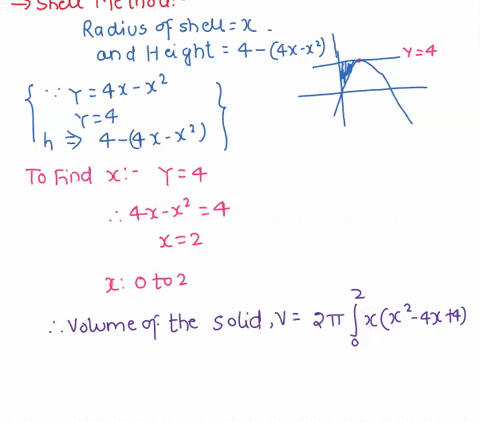 → Shell Method:
Radius of shell = x.
and Height = 4-(4x-x²)
Y=4
∵ Y = 4x-x²
Y=4
h ⇒ 4-(4x-x²)
To Find x:- Y=4
∴ 4x-x² = 4
x=2
x: 0 to 2
∴ Volume of the solid, V = 2π ∫₀² x(x²-4x+4)